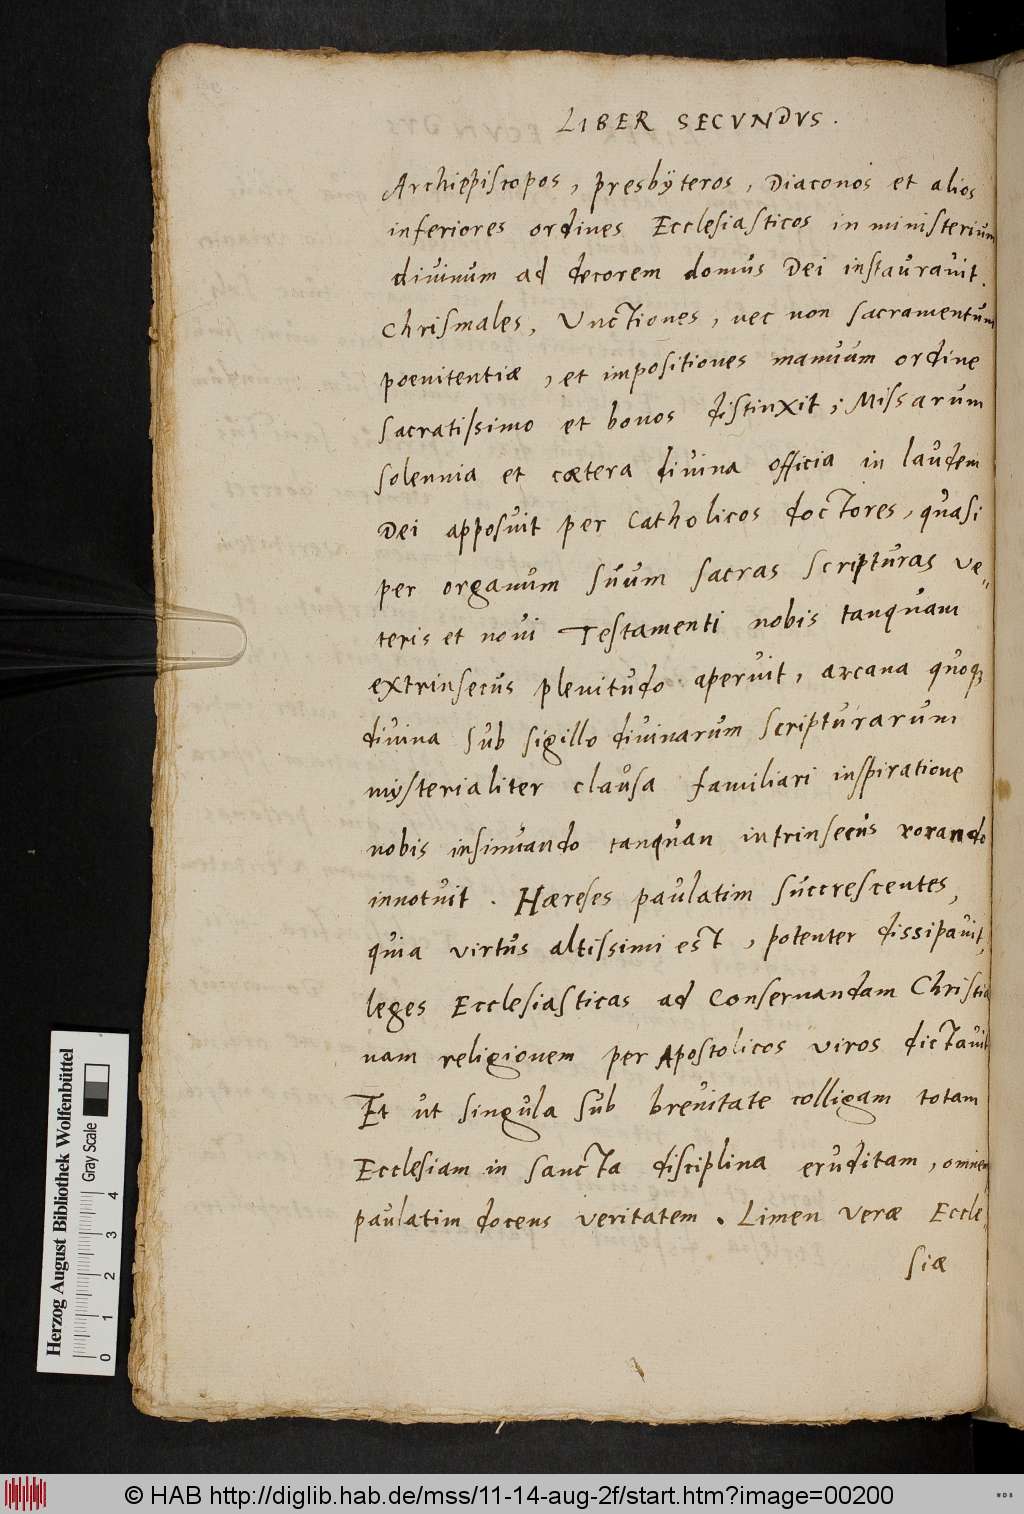 LIBER SECVNDVS.
Archiepiscopos, presbÿteros, Diaconos et alios
inferiores ordines Ecclesiasticos in ministerium
divinum ad decorem domus Dei instauravit.
Chrismales, Vnctiones, nec non sacramentum
poenitentiæ, et impositiones manuum ordine
sacratissimo et bonos distinxit; Missarum
solennia et cætera divina officia in laudem
Dei apposuit per Catholicos doctores, quasi
per organum suum sacras scripturas ve=
teris et novi Testamenti nobis tanquam
extrinsecus plenitudo aperuit, arcana quoq₃
divina sub sigillo divinarum scripturarum
mysterialiter clausa familiari inspiratione
nobis insinuando tanquan intrinsecus rorando
innotuit. Hæreses paulatim succrescentes,
quia virtus altissimi est, potenter dissipavit,
leges Ecclesiasticas ad Conservandam Christia
nam religionem per Apostolicos viros dictavit
Et ut singula sub brevitate colligam totam
Ecclesiam in sancta disciplina eruditam, omnem
paulatim docens veritatem. Limen veræ Eccle,
siæ
Herzog August Bibliothek Wolfenbüttel
Gray Scale
0 1 2 3 4
© HAB http://diglib.hab.de/mss/11-14-aug-2f/start.htm?image=00200